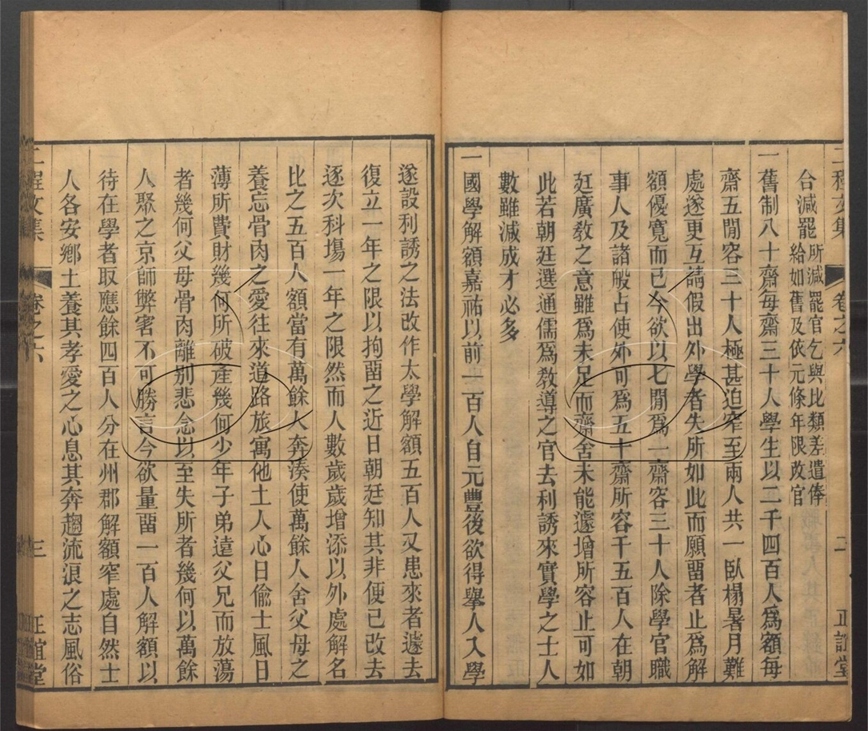 二程文集 卷之六 二 正誼堂
合減罷所減罷官乞與比類差遣俸
給如舊及依元條年限改官
一舊制八十齋每齋三十人學生以二千四百人爲額每
齋五閒容三十人極甚迫窄至兩人共一臥榻暑月難
處遂更互請假出外學者失所如此而願畱者止爲解
額優寛而已今欲以七閒爲一齋容三十人除學官職
事人及諸般占使外可爲五十齋所容千五百人在朝
廷廣敎之意雖爲未足而齋舍未能遽增所容止可如
此若朝廷選通儒爲敎導之官去利誘來實學之士人
數雖減成才必多
一國學解額嘉祐以前一百人自元豐後欲得舉人入學
遂設利誘之法改作太學解額五百人又患來者遽去
復立一年之限以拘畱之近日朝廷知其非便已改去
逐次科塲一年之限然而人數歲歲增添以外處解名
比之五百人額當有萬餘人奔湊使萬餘人舍父母之
養忘骨肉之愛往來道路旅寓他土人心日偸士風日
薄所費財幾何所破產幾何少年子弟遠父兄而放蕩
者幾何父母骨肉離別悲念以至失所者幾何以萬餘
人聚之京師弊害不可勝言今欲量畱一百人解額以
待在學者取應餘四百人分在州郡解額窄處自然士
人各安鄉土養其孝愛之心息其奔趨流浪之志風俗
二程文集 卷之六 三 正誼堂